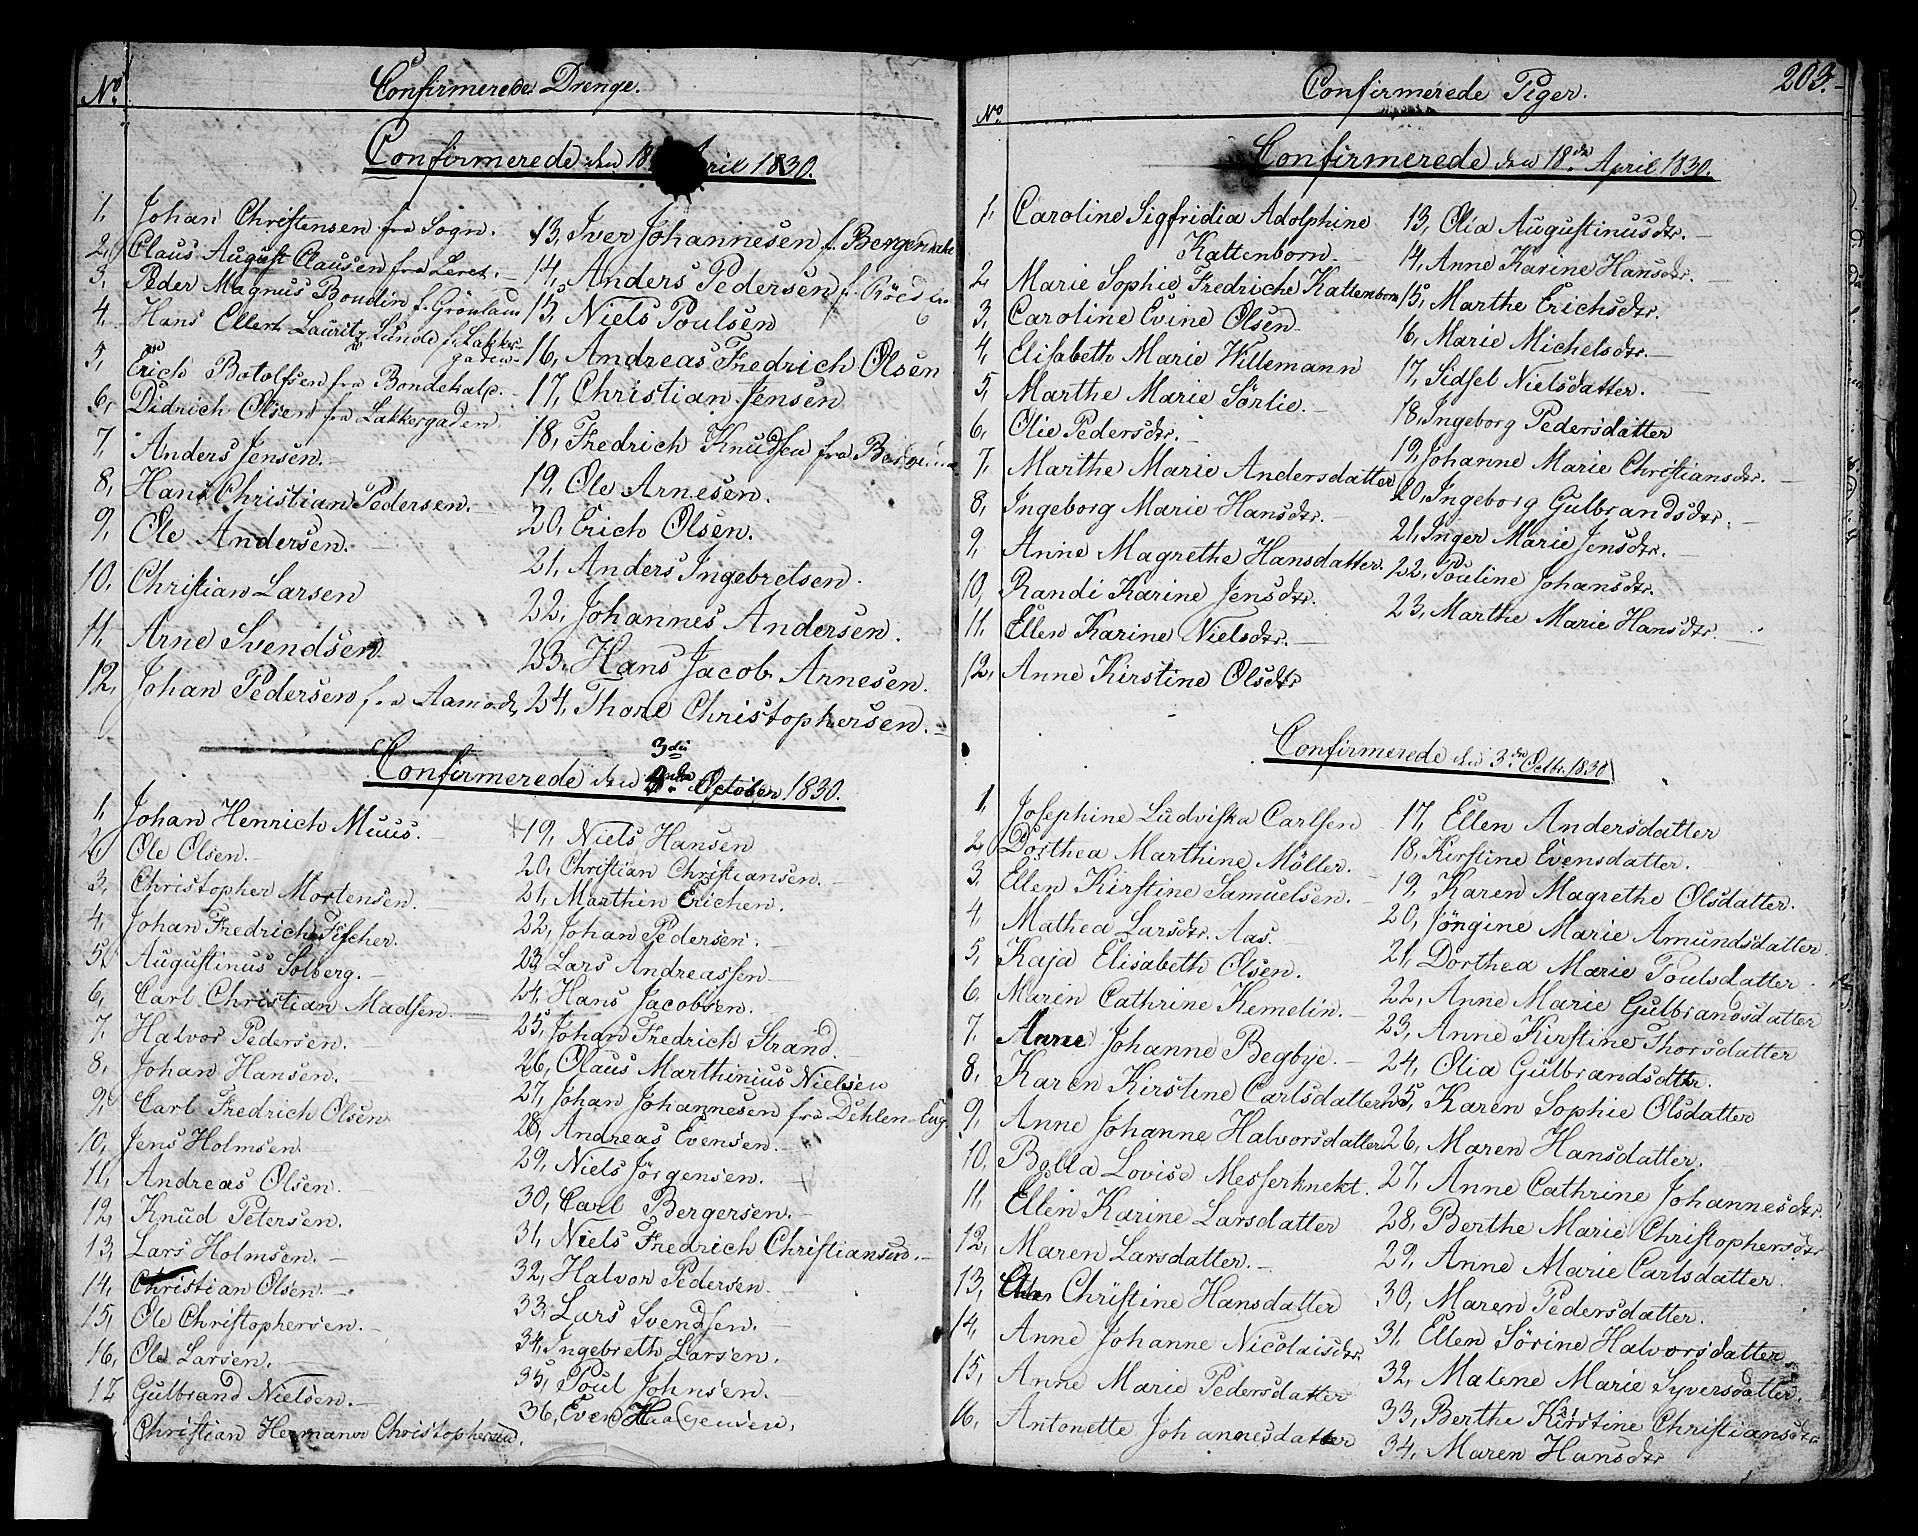 No. Confirmerede Drenge.
Confirmerede den 18 April 1830.
1, Johan Christensen fra Sogn.
2, Claus August Clausen fra Leret.
3, Peder Magnus Boudin f. Grönland
4, Hans Ellert Lauritz Lunde f. Lakkergaden
5, Erich Botolfsen fra Bondehale.
6, Didrich Olsen fra Lakkergaden
7, Anders Jensen.
8, Hans Christian Pedersen.
9, Ole Andersen.
10, Christian Larsen
11, Arne Svendsen
12, Johan Pedersen fra Aamodt
13, Iver Johannesen f.
14, Anders Pedersen f.
15, Niels Poulsen
16, Andreas Fredrich Olsen
17, Christian Jensen
18, Fredrich Knudsen fra
19, Ole Arnesen.
20, Erich Olsen.
21, Anders Ingebretsen.
22, Johannes Andersen.
23, Hans Jacob Arnesen.
24, Thore Christophersen.
Confirmerede den 3die October 1830.
1, Johan Henrich Muus.
2, Ole Olsen.
3, Christopher Mortensen.
4, Johan Fredrich Fischer.
5, Augustinus Solberg.
6, Carl Christian Madsen.
7, Halvor Pedersen.
8, Johan Hansen.
9, Carl Fredrich Olsen
10, Jens Holmsen.
11, Andreas Olsen.
12, Knud Petersen.
13, Lars Holmsen.
14, Christian Olsen.
15, Ole Christophersen.
16, Ole Larsen.
17 Gulbrand Nielsen.
Christian Herman Christophersen.
19, Niels Hansen
20, Christian Christiansen.
21, Marthin Erichen.
22, Johan Pedersen.
23, Lars Andreassen
24, Hans Jacobsen.
25, Johan Fredrich Strand.
26, Olaus Marthinius Nielsen
27, Johan Johannesen fra Dehlen-Eng
28, Andreas Evensen.
29, Niels Jörgensen.
30, Carl Bergersen.
31, Niels Fredrich Christiansen.
32, Halvor Pedersen
33, Lars Svendsen.
34, Ingebreth Larsen.
35, Poul Johnsen.
36, Even Haagensen.
203.
No. Confirmerede Piger.
Confirmerede den 18de April 1830.
1, Caroline Sigfridia Adolphine
Kattenborn.
2 Marie Sophie Fredriche Kattenborn
3, Caroline Evine Olsen
4, Elisabeth Marie Willemann
5, Marthe Marie Sörlie.
6, Olie Pedersdtr.
7, Marthe Marie Andersdatter
8, Ingeborg Marie Hansdtr.
9, Anne Magrethe Hansdatter.
10, Randi Karine Jensdtr.
11, Ellen Karine Nielsdtr.
12, Anne Kirstine Olsdtr
13, Olia Augustinusdtr.
14, Anne Karine Hansdtr.
15, Marthe Erichsdtr.
16, Marie Michelsdtr.
17, Sidsel Nielsdatter.
18, Ingeborg Pedersdatter
19, Johanne Marie Christiansdtr.
20, Ingeborg Gulbrandsdtr.
21, Inger Marie Jensdtr.
22, Pouline Johansdtr.
23, Marthe Marie Hansdtr.
Confirmerede den 3de Octb. 1830
1, Josephine Ludviska Carlsen
2 Dorthea Marthine Möller.
3, Ellen Kirstine Samuelsen.
4, Mathea Larsdtr. Aas.
5, Kaja Elisabeth Olsen.
6. Maren Cathrine Kemelin.
7, Anne Johanne Begbye.
8, Karen Kirstine Carlsdatter
9, Anne Johanne Halvorsdatter
10, Bolla Lovise Messerknekt.
11, Ellen Karine Larsdatter
12, Maren Larsdatter.
13, Christine Hansdatter
14, Anne Johanne Nicolaisdtr.
15, Anne Marie Pedersdatter
16, Antonette Johannesdatter
17, Ellen Andersdatter
18, Kirstine Evensdatter.
19, Karen Magrethe Olsdatter.
20, Jöngine Marie Amundsdatter
21, Dorthea Marie Poulsdatter.
22, Anne Marie Gulbrandsdatter
23, Anne Kirstine Thorsdatter
24, Olia Gulbrandsdatter.
25, Karen Sophie Olsdatter
26, Maren Hansdatter.
27, Anne Cathrine Johannesdtr.
28, Berthe Marie Christophersdtr
29, Anne Marie Carlsdatter.
30, Maren Pedersdatter.
31. Ellen Sörine Halvorsdatter
32, Malene Marie Syversdatter.
33, Berthe Kirstine Christiansdtr.
34, Maren Hansdtr